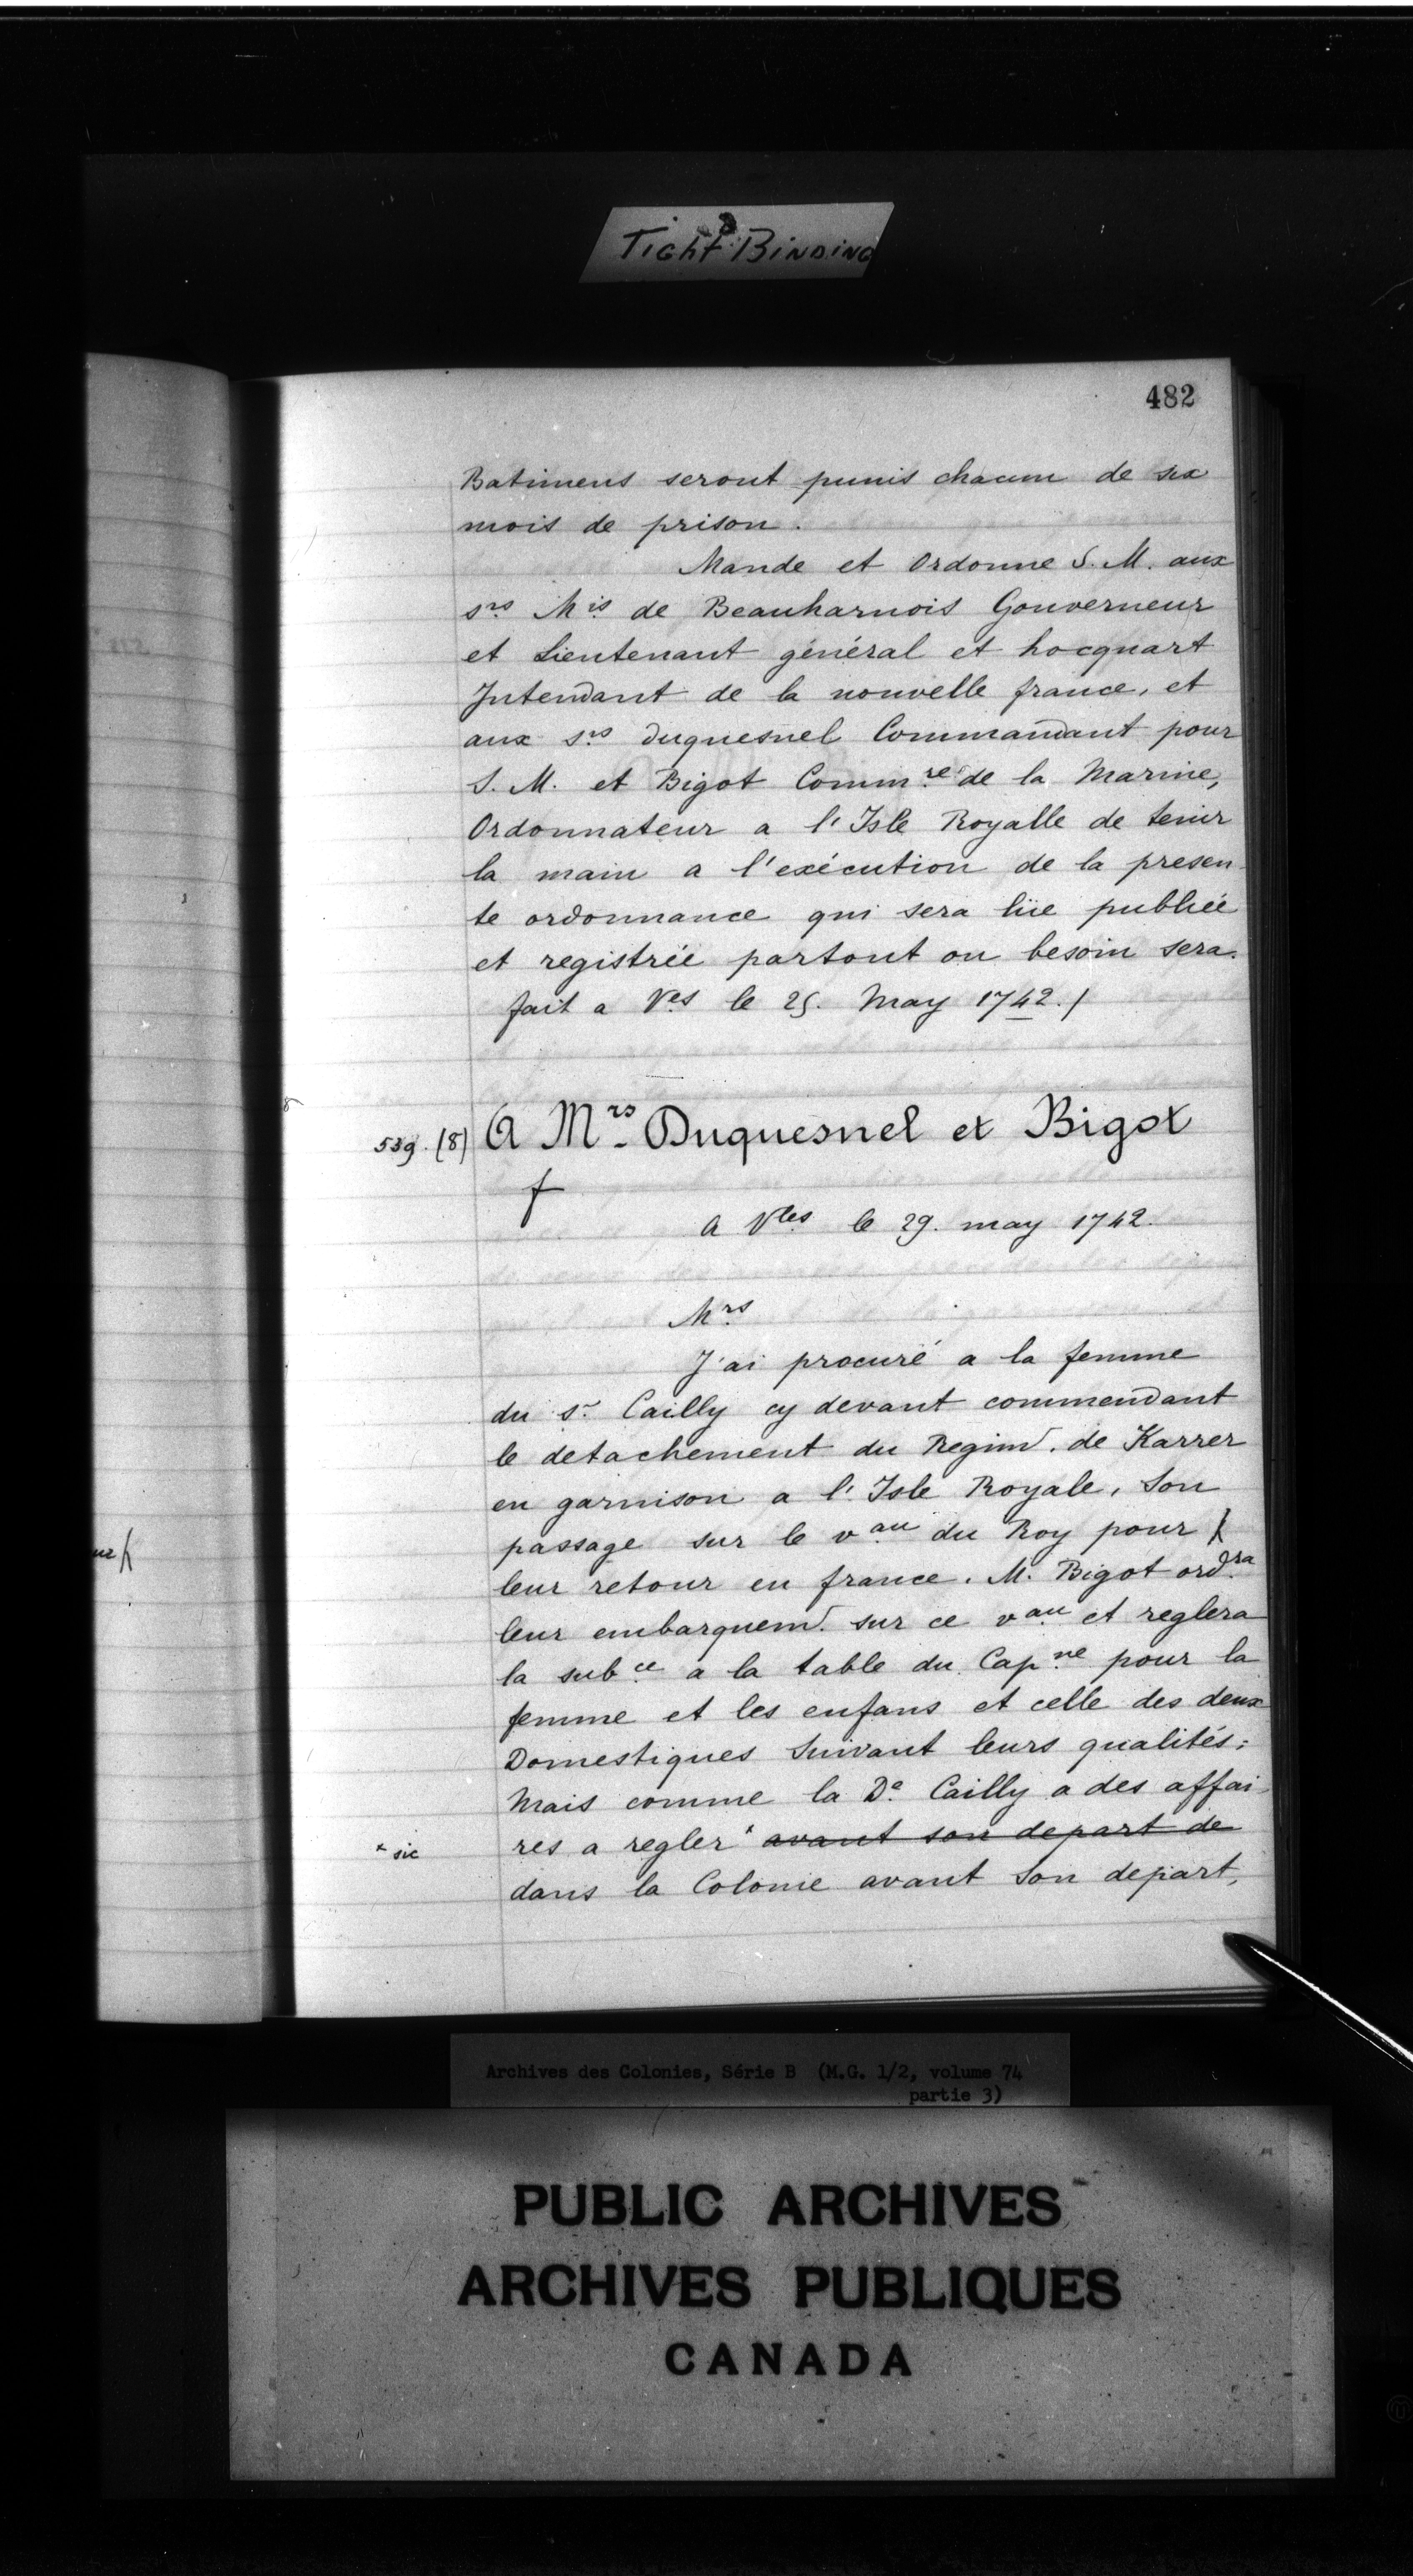 Tight Binding
482
Batimens seront punis chacun de six
mois de prison.
Mande et Ordonne S. M. aux
srs Mis de Beauharnois Gouverneur
et Lieutenant général et hocquart
Intendant de la nouvelle france, et
aux srs duquesnel Commandant pour
S. M. et Bigot Commre de la Marine,
Ordonnateur a l'Isle Royalle de tenir
la main a l'exécution de la presen-
te ordonnance qui sera lüe publiée
et registrée partout ou besoin sera.
fait a Ves le 25. May 1742./
539. (8) A Mrs Duquesnel et Bigot
f
A Vles le 29. may 1742.
Mrs
J'ai procuré a la femme
du sr Cailly cy devant commendant
le detachement du Regimd. de Karrer
en garnison a l'Isle Royale, Son
passage sur le vau du Roy pour
leur retour en france. M. Bigot ordra
leur embarquemd. sur ce vau et reglera
la subce a la table du Capne pour la
femme et les enfans et celle des deux
Domestiques Suivant leurs qualités;
Mais comme la De Cailly a des affai-
* sic res a regler * avant son depart de
dans la Colonie avant Son depart,
Archives des Colonies, Série B (M.G. 1/2, volume 74
partie 3)
PUBLIC ARCHIVES
ARCHIVES PUBLIQUES
CANADA